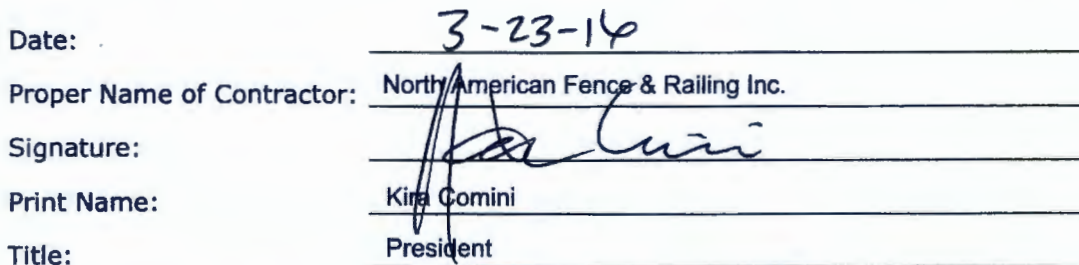 Date: 3-23-16
Proper Name of Contractor: North American Fence & Railing Inc.
Signature:
Print Name: Kira Comini
Title: President